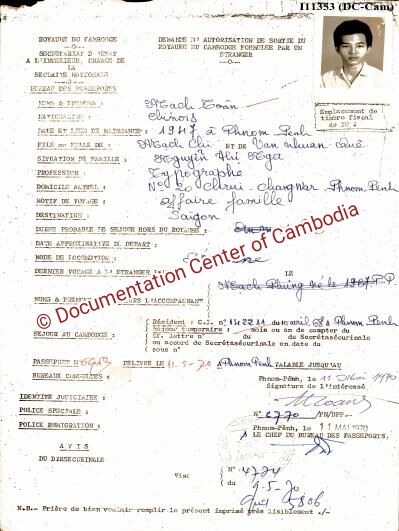 I11353 (DC-Cam)
ROYAUME DU CAMBODGE
SECRETARIAT D'ETAT
A L'INTERIEUR, CHARGE DE
LA
SECURITE NATIONALE
BUREAU DES PASSEPORTS
DEMANDE D'AUTORISATION DE SORTIE DU
ROYAUME DU CAMBODGE FORMULEE PAR UN
ETRANGER
Emplacement de
timbre fiscal
NOMS & PRENOMS : Mach Toàn
NATIONALITE : Chinois
DATE ET LIEU DE NAISSANCE : 1947 à Phnom Penh
FILS ou FILLE DE : Mach Chi ET DE Van Nhuan
SITUATION DE FAMILLE : Nguyên Thi Nga
PROFESSION : Typographe
DOMICILE ACTUEL : N° 20 Chrui Changwar Phnom Penh
MOTIF DE VOYAGE : affaire famille
DESTINATION : Saigon
DUREE PROBABLE DE SEJOUR HORS DU ROYAUME :
DATE APPROXIMATIVE DU DEPART :
MODE DE LOCOMOTION :
DERNIER VOYAGE A L'ETRANGER LE
NOMS & PRENOMS L'ACCOMPAGNANT
© Documentation Center of Cambodia
SEJOUR AU CAMBODGE :
Résident : C.I. N° à Phnom Penh
Séjour temporaire : mois ou an de compter du
Cf. lettre N° du Secrétasécurinale
ou accord de Secrétasécurinale en date du
sous n°
PASSEPORT N° DELIVRE LE 11-5-70 à Phnom Penh VALABLE JUSQU'AU
BUREAUX CONSULTES :
Phnom-Pénh, le 11 Mai 1970
Signature de l'intéressé
IDENTITE JUDICIAIRE :
POLICE SPECIALE :
POLICE IMMIGRATION :
N° 6770 /PN/BPP.-
Phnom-Pénh, le 11 MAI 1970
LE CHEF DU BUREAU DES PASSEPORTS,
A V I S
DU DIRSECURINALE
Visa
N° 4774
9-5-70
N.B.- Prière de bien vouloir remplir le présent imprimé très lisiblement ./-